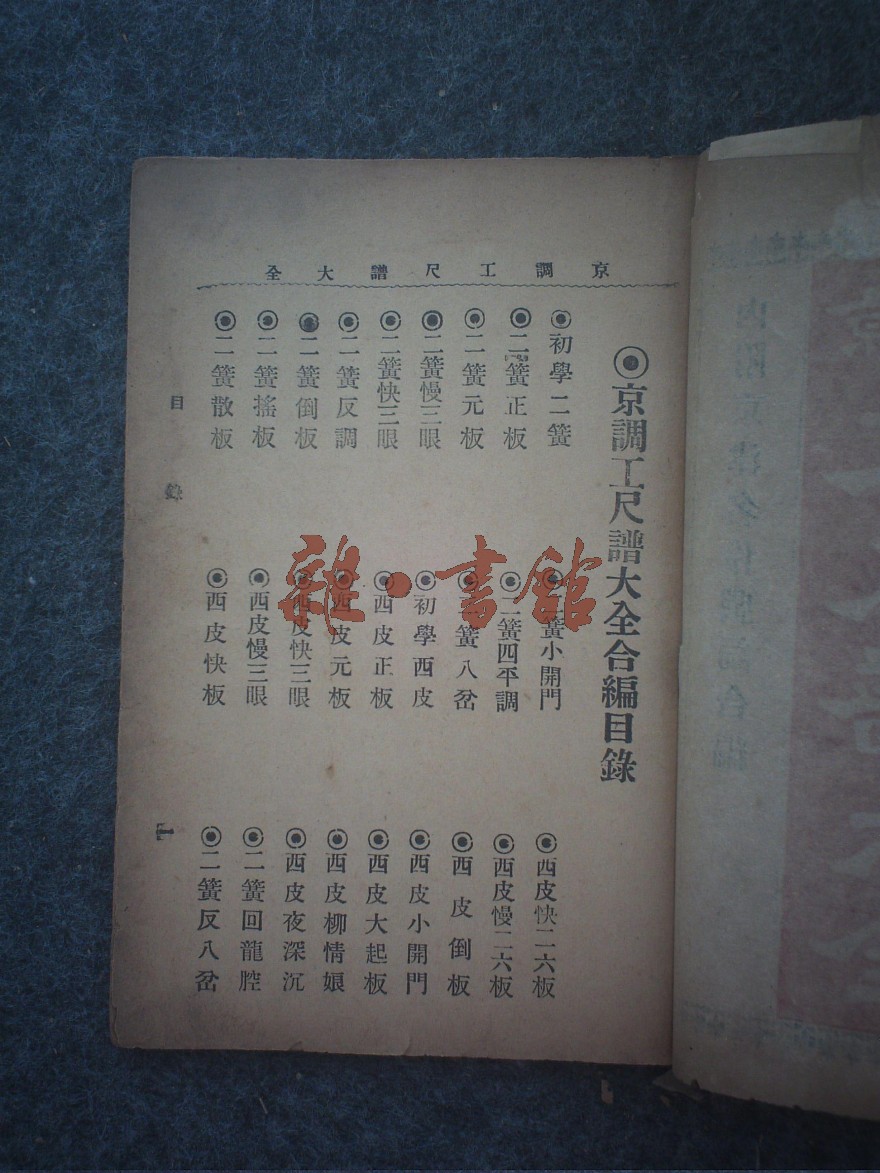 京調工尺譜大全
京調工尺譜大全合編目錄
初學二簧
二簧正板
二簧元板
二簧慢三眼
二簧快三眼
二簧反調
二簧倒板
二簧搖板
二簧散板
二簧小開門
二簧四平調
二簧八岔
初學西皮
西皮正板
西皮元板
西皮快三眼
西皮慢三眼
西皮快板
西皮快二六板
西皮慢二六板
西皮倒板
西皮小開門
西皮大起板
西皮柳情娘
西皮夜深沉
二簧回龍腔
二簧反八岔
目錄
一
雜·書館